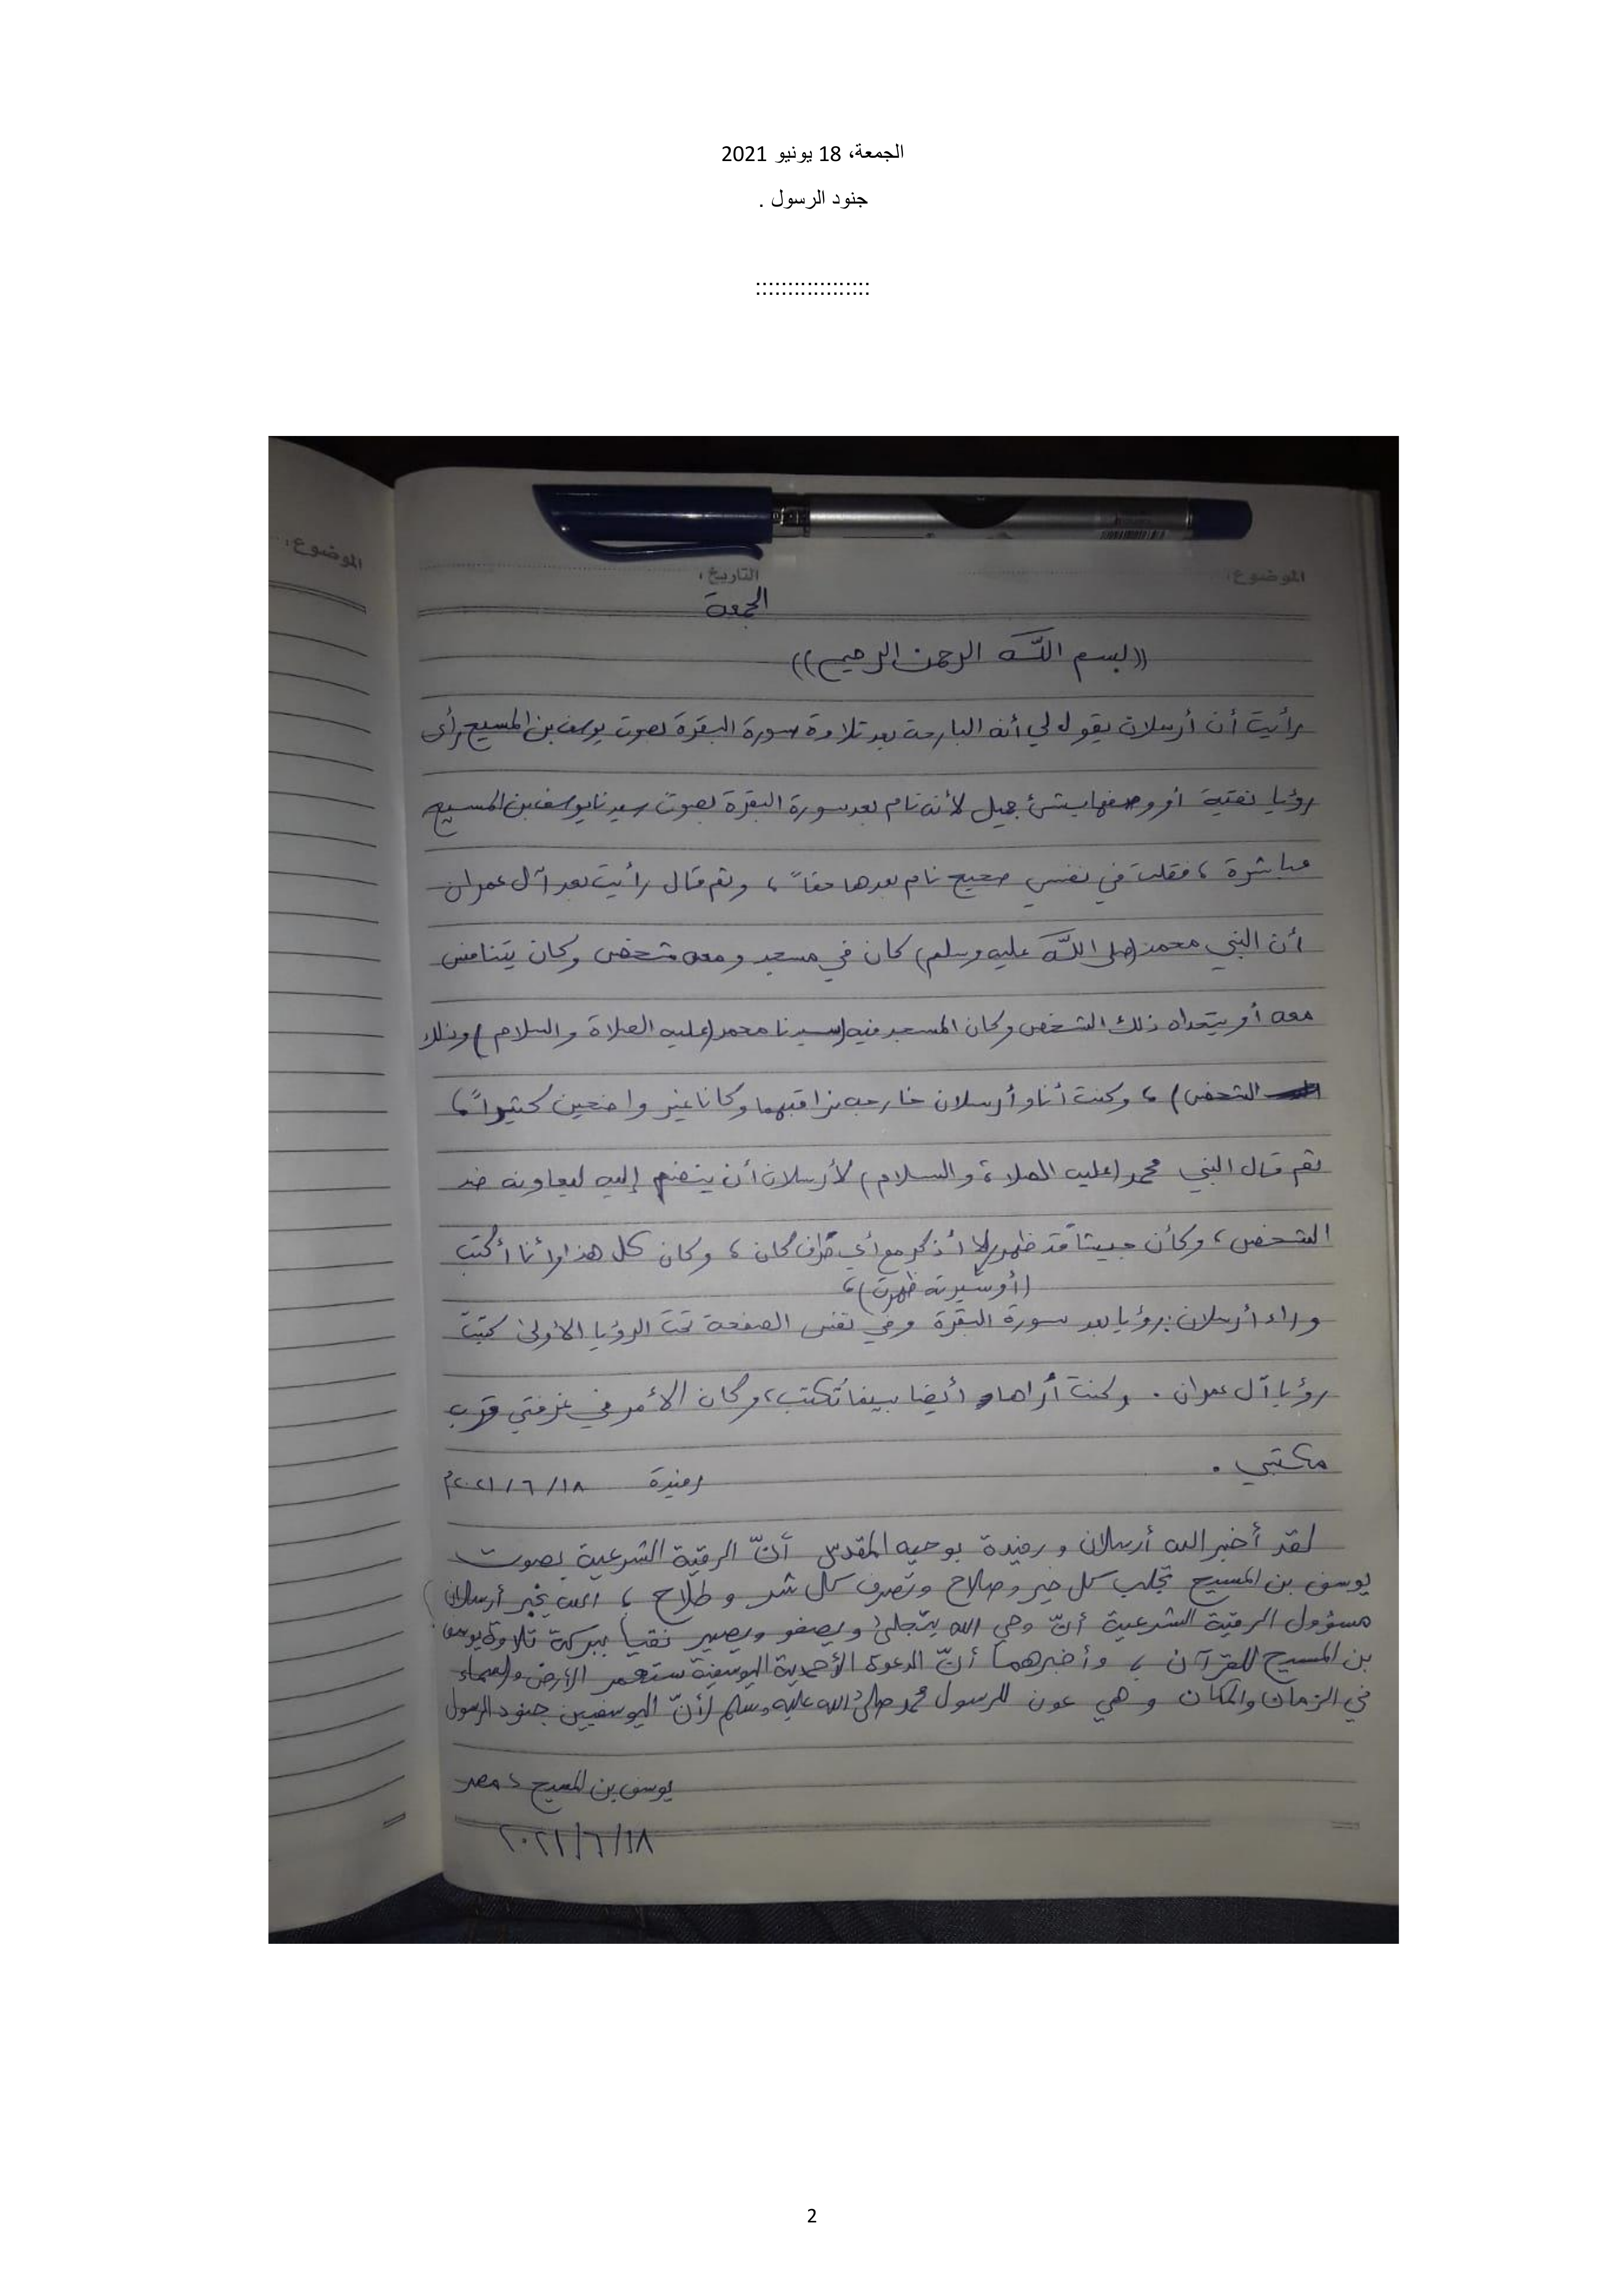 الجمعة، 18 يونيو 2021
جنود الرسول .
::::::::::::::::::
الموضوع:
الموضوع:
التاريخ:
الجمعة
((بسم اللّه الرحمن الرحيم))
رأيت أن أرسلان يقول لي أنه البارحة بعد تلاوة سورة البقرة بصوت يوسف بن المسيح رأى
رؤيا نقية أو وصفها بشئ جميل لأنه نام بعد سورة البقرة بصوت سيدنا يوسف بن المسيح
مباشرة ، فقلت في نفسي صحيح نام بعدها حقاً ، وثم قال رأيت بعد آل عمران
أن النبي محمد (صلى اللّه عليه وسلم) كان في مسجد ومعه شخص وكان يتنافس
معه أو يتحداه ذلك الشخص وكان المسجد فيه (سيدنا محمد (عليه الصلاة والسلام) وذلك
الشخص) ، وكنت أنا وأرسلان خارجه نراقبهما وكانا غير واضحين كثيراً ،
ثم قال النبي محمد (عليه الصلاة والسلام) لأرسلان أن ينضم إليه ليعاونه ضد
الشخص ، وكأن جيشا قد ظهر لا أذكر مع أي طرف كان ، وكان كل هذا وأنا أكتب
(أو سيرته ظهرت) ،
وراء أرسلان رؤيا بعد سورة البقرة وفي نفس الصفحة تحت الرؤيا الأولى كتبت
رؤيا آل عمران . وكنت أراها أيضا بينما تُكتب ، وكان الأمر في غرفتي قرب
مكتبي .
رفيدة ١٨/٦/٢٠٢١م
لقد أخبر الله أرسلان ورفيدة بوحيه المقدس أنّ الرقية الشرعية بصوت
يوسف بن المسيح تجلب كل خير وصلاح وتصرف كل شر وطلاح ، الله يخبر أرسلان
مسؤول الرقية الشرعية أنّ وحي الله يتجلى ويصفو ويصير نقياً ببركة تلاوة يوسف
بن المسيح للقرآن ، وأخبرهما أنّ الدعوة الأحمدية اليوسفية ستعمر الأرض والسماء
في الزمان والمكان وهي عون للرسول محمد صلى الله عليه وسلم لأنّ اليوسفيين جنود الرسول
يوسف بن المسيح ، مصر
١٨/٦/٢٠٢١
2